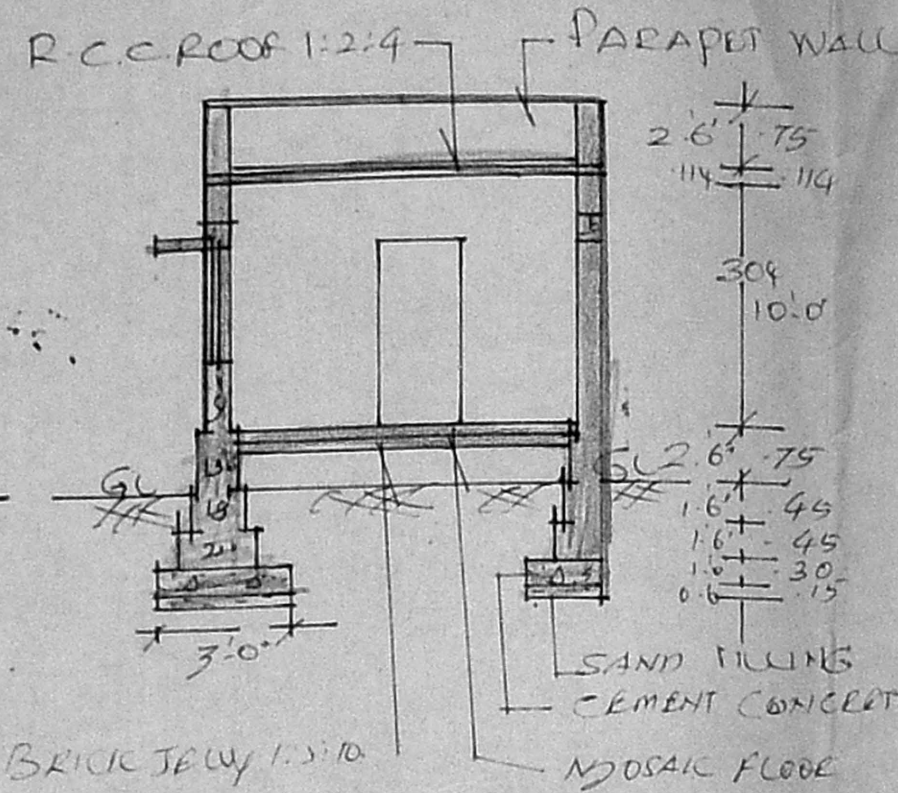 R.C.C.ROOF 1:2:4
PARAPET WALL
2.6' .75
.114 .114
.304
10'.0'
GL
GL 2.6' .75
1.6' .45
1.6' .45
1.0 .30
0.6 .15
9
18
3'-0"
SAND FILLING
CEMENT CONCRET
BRICK JELLY
MOSAIC FLOOR